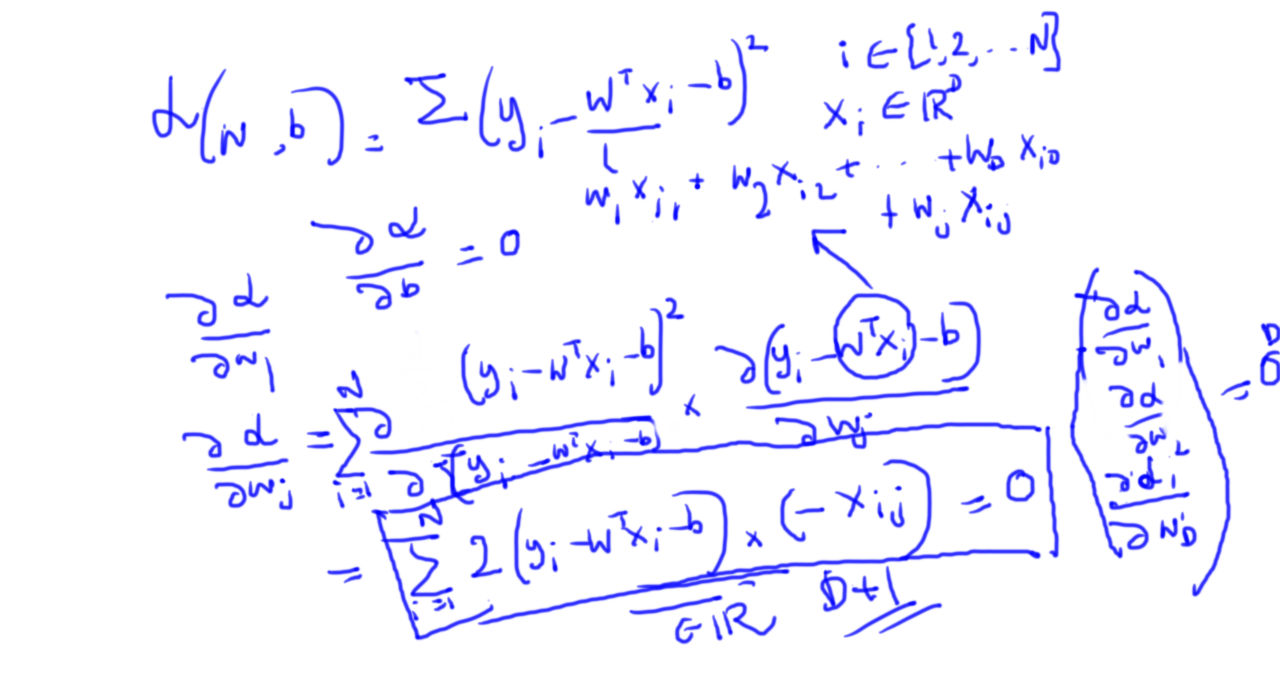 ℒ(w, b) = Σ(yᵢ − wᵀxᵢ − b)² i ∈ {1, 2, ... N}
xᵢ ∈ ℝᴰ
w₁xᵢ₁ + w₂xᵢ₂ + ... + w_D x_iD
+ wⱼxᵢⱼ
∂ℒ/∂b = 0
∂ℒ/∂w₁
∂ℒ/∂wⱼ = Σᵢ₌₁ᴺ ∂(yᵢ − wᵀxᵢ − b)²/∂(yᵢ − wᵀxᵢ − b) × ∂(yᵢ − wᵀxᵢ − b)/∂wⱼ
= Σᵢ₌₁ᴺ 2(yᵢ − wᵀxᵢ − b) × (−xᵢⱼ) = 0
∈ ℝ D+1
(∂ℒ/∂w₁
∂ℒ/∂w₂
∂ℒ/∂w_D) = 0ᴰ